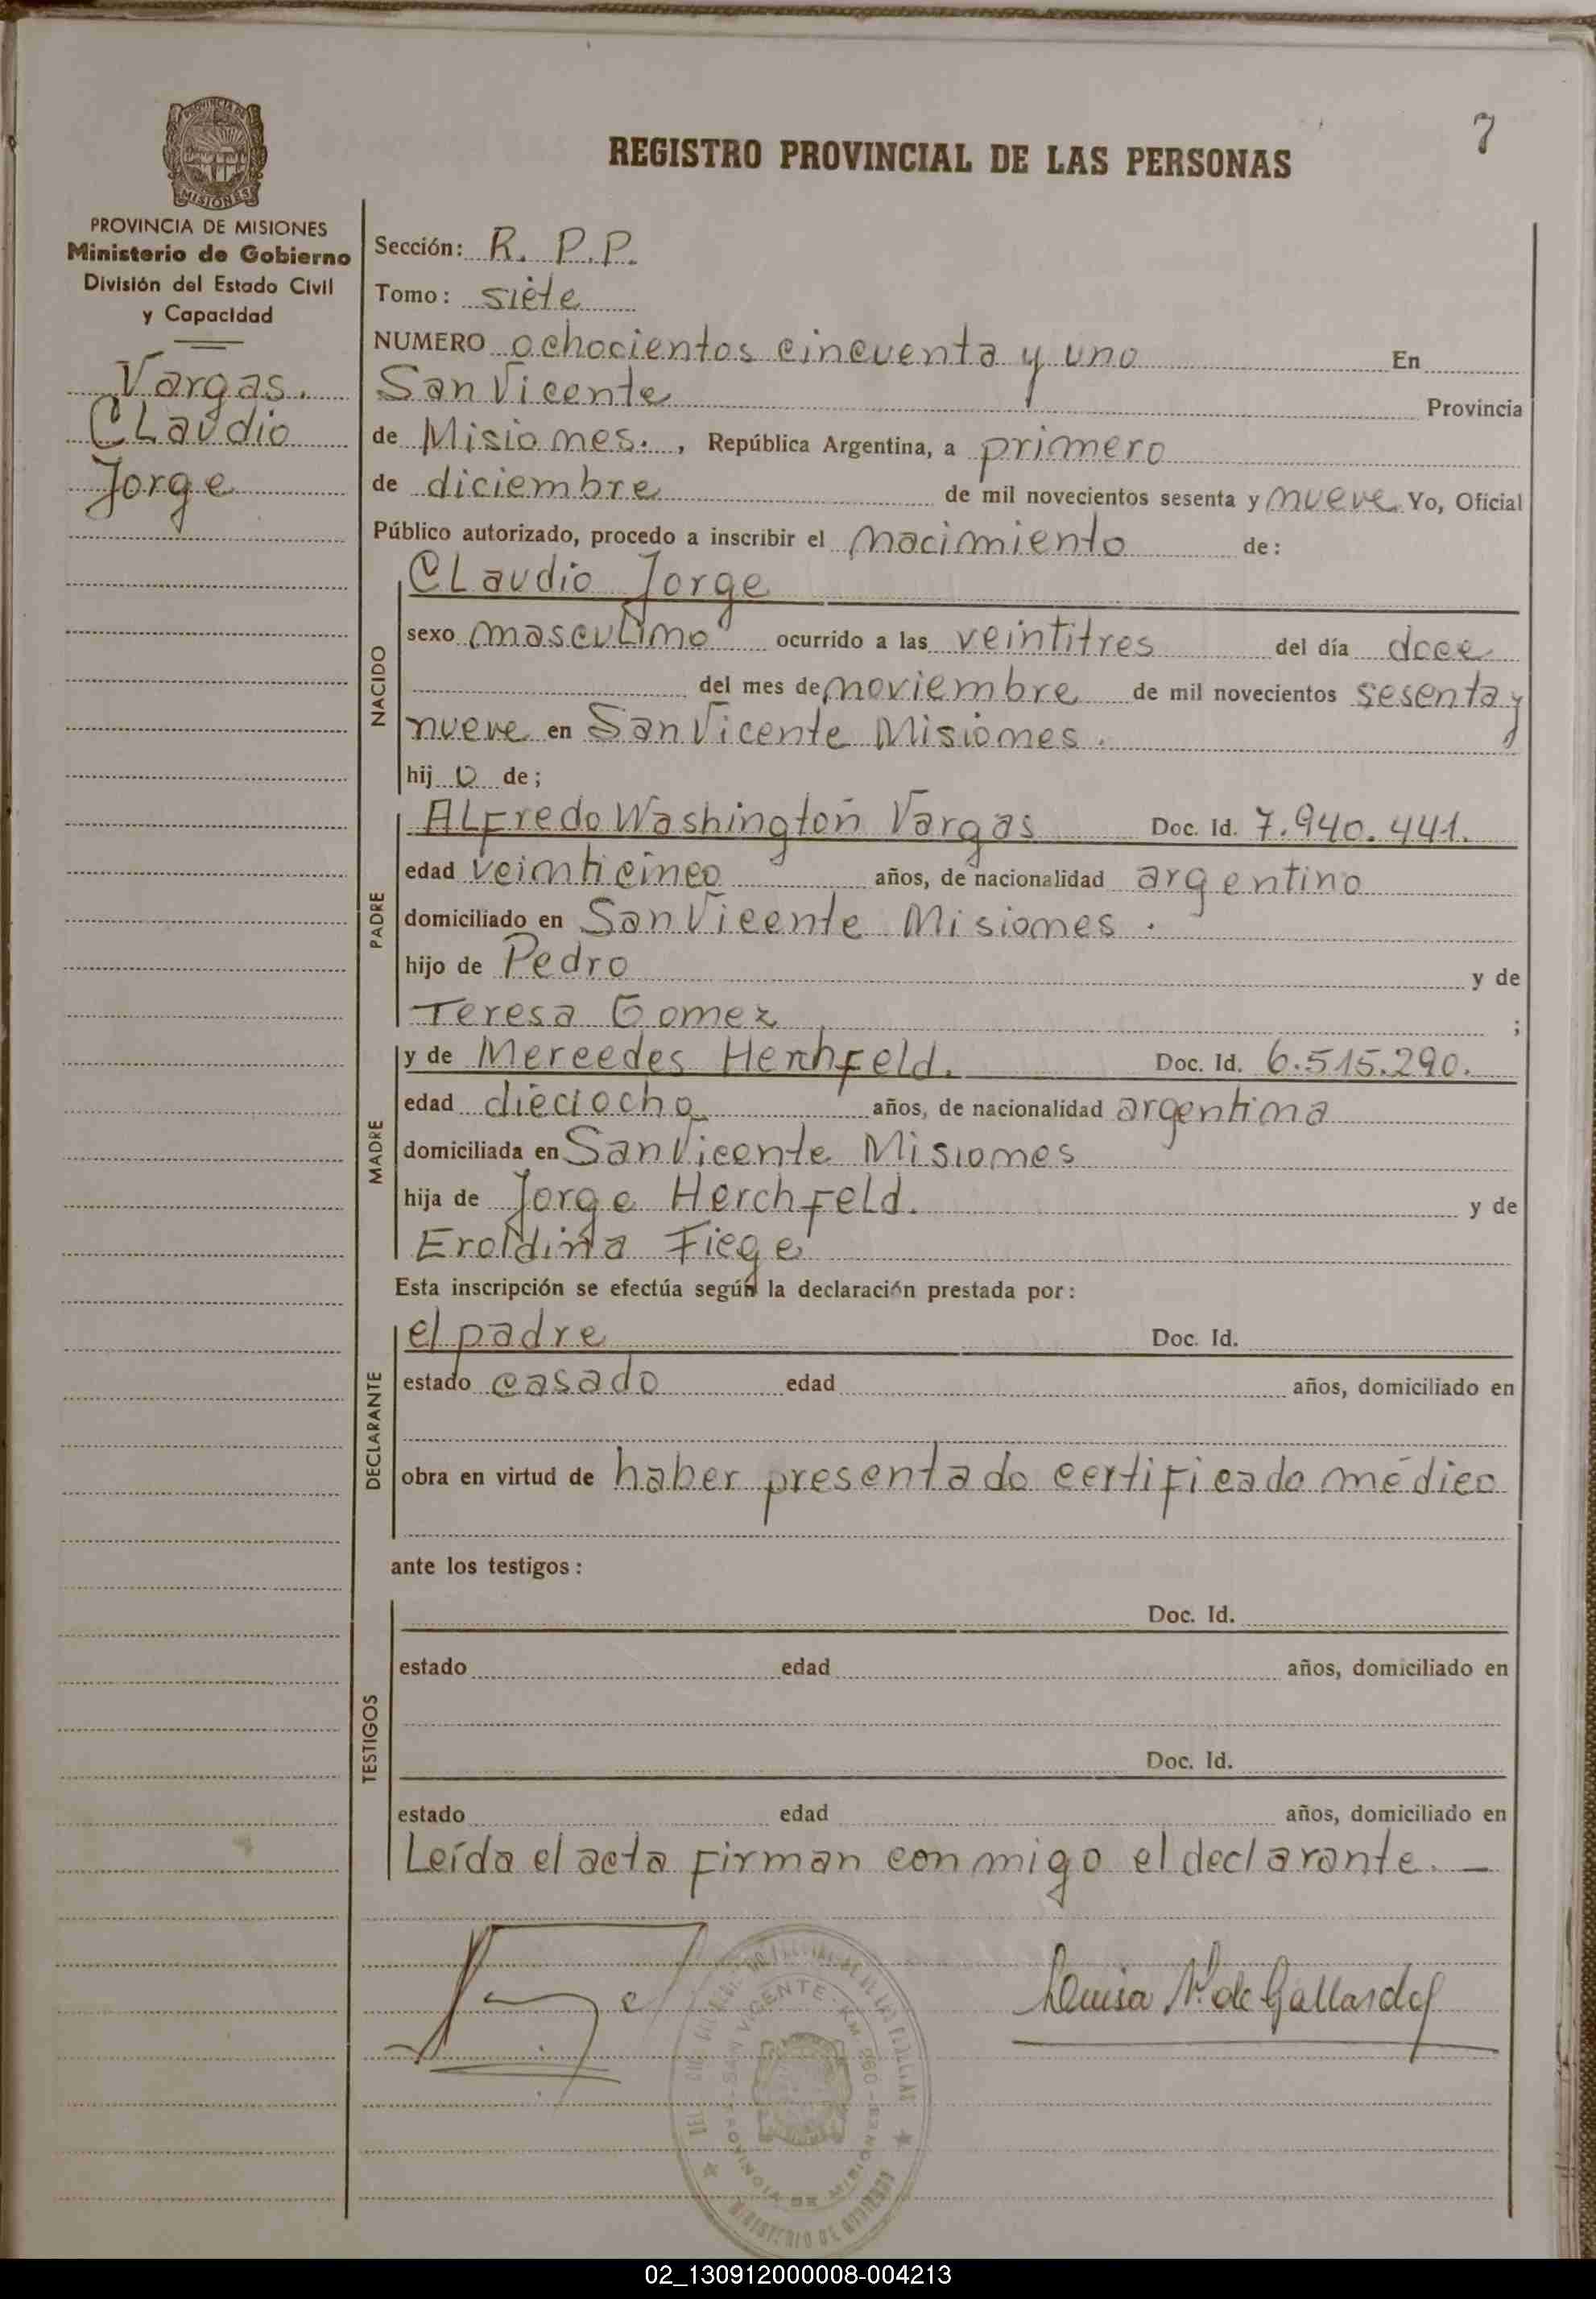 7
REGISTRO PROVINCIAL DE LAS PERSONAS
MISIONES
PROVINCIA DE MISIONES
Ministerio de Gobierno
División del Estado Civil
y Capacidad
Vargas.
CLaudio
Jorge
Sección: R. P.P.
Tomo: siete
NUMERO ochocientos cincuenta y uno En
San Vicente Provincia
de Misiones., República Argentina, a primero
de diciembre de mil novecientos sesenta y nueve Yo, Oficial
Público autorizado, procedo a inscribir el nacimiento de:
NACIDO
CLaudio Jorge
sexo masculino ocurrido a las veintitres del día doce
del mes de noviembre de mil novecientos sesenta y
nueve en San Vicente Misiones.
hij o de;
PADRE
ALFredo Washington Vargas Doc. Id. 7.940.441.
edad veinticinco años, de nacionalidad argentino
domiciliado en San Vicente Misiones.
hijo de Pedro y de
Teresa Gomez ;
MADRE
y de Mercedes Herhfeld. Doc. Id. 6.515.290.
edad dieciocho años, de nacionalidad argentina
domiciliada en San Vicente Misiones
hija de Jorge HerchfeLd. y de
Eroldina Fiege
Esta inscripción se efectúa según la declaración prestada por:
DECLARANTE
el padre Doc. Id.
estado casado edad años, domiciliado en
obra en virtud de haber presentado certificado médico
ante los testigos:
TESTIGOS
Doc. Id.
estado edad años, domiciliado en
Doc. Id.
estado edad años, domiciliado en
Leída el acta firman conmigo el declarante. —
Luisa N. de Gallardo
SAN VICENTE - KM 260
PROVINCIA DE MISIONES
MINISTERIO DE GOBIERNO
02_130912000008-004213